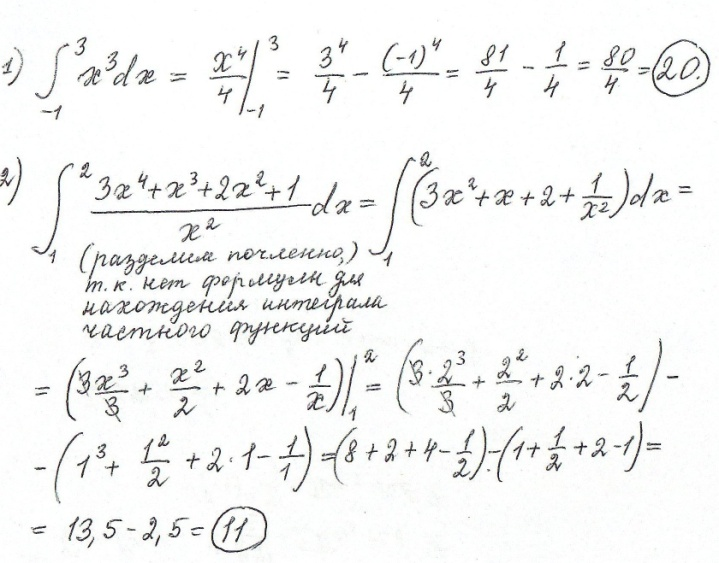 1) ∫₋₁³ x³dx = x⁴/4 |₋₁³ = 3⁴/4 - (-1)⁴/4 = 81/4 - 1/4 = 80/4 = 20.
2) ∫₁² (3x⁴+x³+2x²+1)/x² dx = ∫₁² (3x²+x+2+1/x²)dx =
(разделим почленно,)
т.к. нет формулы для
нахождения интеграла
частного функций
= (3x³/3 + x²/2 + 2x - 1/x)|₁² = (3·2³/3 + 2²/2 + 2·2 - 1/2) -
- (1³ + 1²/2 + 2·1 - 1/1) = (8+2+4-1/2)-(1+1/2+2-1) =
= 13,5-2,5 = 11